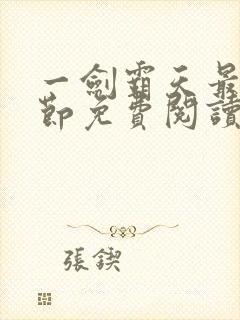 一劍霸天最
節免費閱讀
張鍥